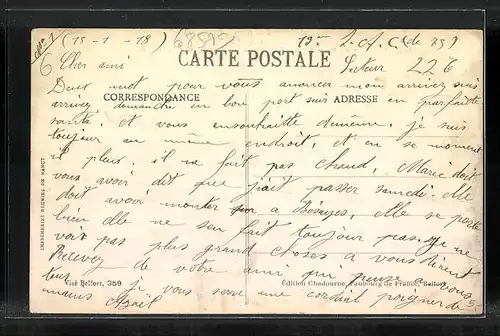 (15-1-18) 68512
CARTE POSTALE
Cher ami Secteur 226
Deux mot pour vous anoncer mon arrivez suis
arrivez dimanche en bon port suis en parfaite
CORRESPONDANCE ADRESSE
santé. et vous ensouhaitte de même. je suis
toujour au même endroit, et en se moment
il pleut. il ne fait pas chaud, Marie doit
vous avoir dit que j'ait passer samedi. elle
doit avoir monter a elle se porte
bien elle ne sen fait toujour pas. je ne
voir pas plus grand choses a vous dirent
Recevez de votre ami qui pense a vous
tous je vous serre une cordial poigner de
mains
IMPRIMERIES RÉUNIES DE NANCY
Visé Belfort, 359
Édition Chadourne, Faubourg de France, Belfort